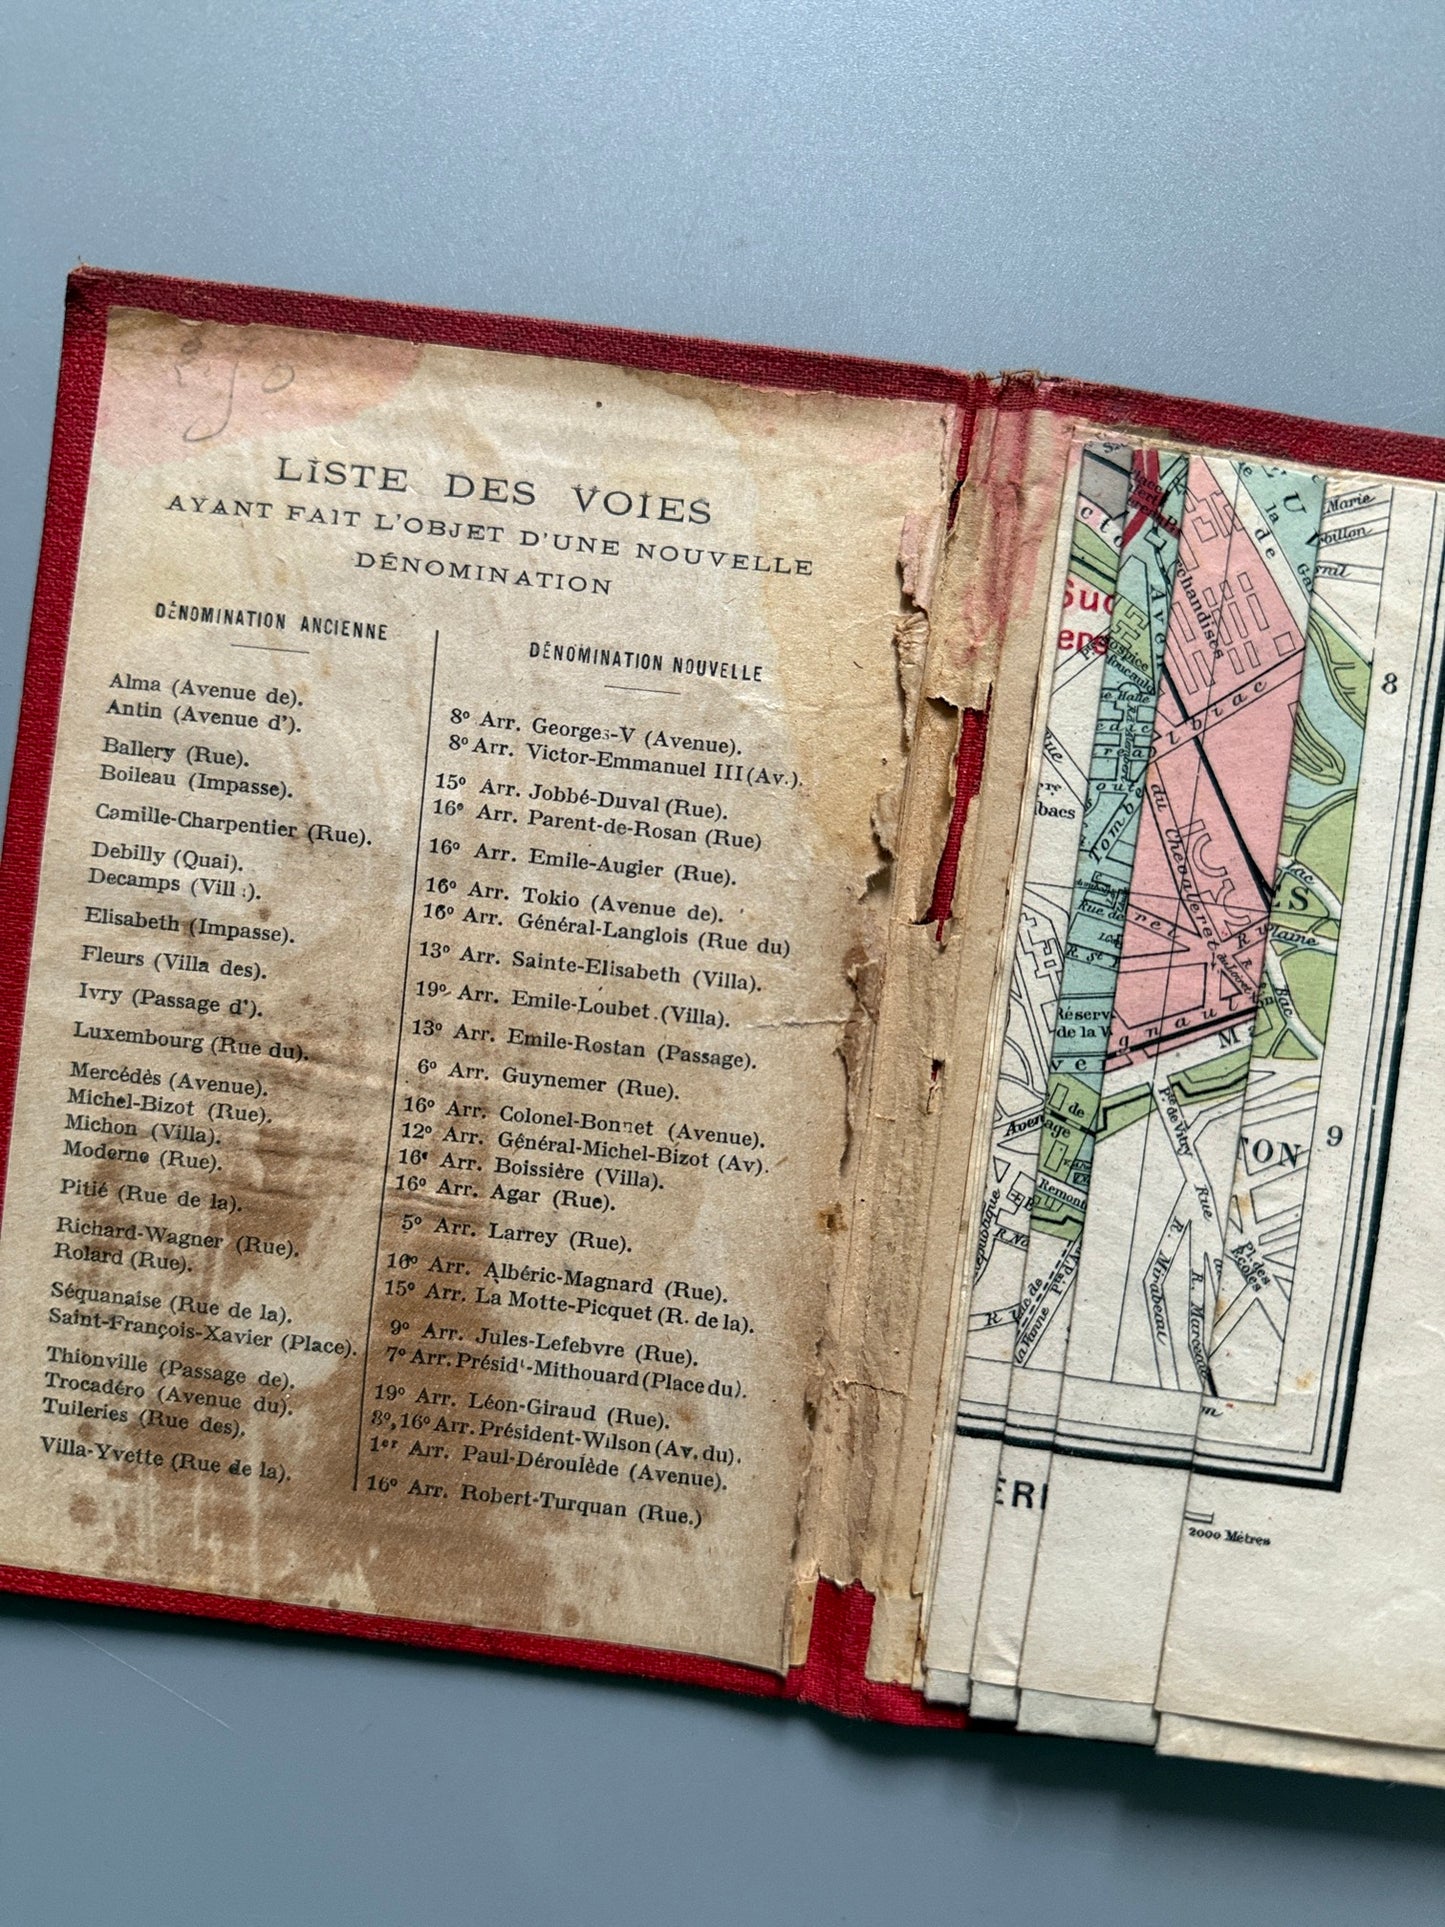 LISTE DES VOIES
AYANT FAIT L'OBJET D'UNE NOUVELLE
DÉNOMINATION
DÉNOMINATION ANCIENNE
Alma (Avenue de).
Antin (Avenue d').
Ballery (Rue).
Boileau (Impasse).
Camille-Charpentier (Rue).
Debilly (Quai).
Decamps (Vill :).
Elisabeth (Impasse).
Fleurs (Villa des).
Ivry (Passage d').
Luxembourg (Rue du).
Mercédès (Avenue).
Michel-Bizot (Rue).
Michon (Villa).
Moderne (Rue).
Pitié (Rue de la).
Richard-Wagner (Rue).
Rolard (Rue).
Séquanaise (Rue de la).
Saint-François-Xavier (Place).
Thionville (Passage de).
Trocadéro (Avenue du).
Tuileries (Rue des).
Villa-Yvette (Rue de la).
DÉNOMINATION NOUVELLE
8º Arr. Georges-V (Avenue).
8º Arr. Victor-Emmanuel III (Av.).
15º Arr. Jobbé-Duval (Rue).
16º Arr. Parent-de-Rosan (Rue)
16º Arr. Emile-Augier (Rue).
16º Arr. Tokio (Avenue de).
16º Arr. Général-Langlois (Rue du)
13º Arr. Sainte-Elisabeth (Villa).
19º Arr. Emile-Loubet (Villa).
13º Arr. Emile-Rostan (Passage).
6º Arr. Guynemer (Rue).
16º Arr. Colonel-Bonnet (Avenue).
12º Arr. Général-Michel-Bizot (Av).
16º Arr. Boissière (Villa).
16º Arr. Agar (Rue).
5º Arr. Larrey (Rue).
16º Arr. Albéric-Magnard (Rue).
15º Arr. La Motte-Picquet (R. de la).
9º Arr. Jules-Lefebvre (Rue).
7º Arr. Présidt-Mithouard (Place du).
19º Arr. Léon-Giraud (Rue).
8º, 16º Arr. Président-Wilson (Av. du).
1er Arr. Paul-Déroulède (Avenue).
16º Arr. Robert-Turquan (Rue.)
Marie
8
biac
du Chevaleret
Tombe
Rue de
R. St
Réserv.
de la V
Lac
Bac
9
TON
de
Remont
Pte de Vitry
Rue
R. Mirabeau
R. Marceau
Pl. des
Écoles
2000 Mètres